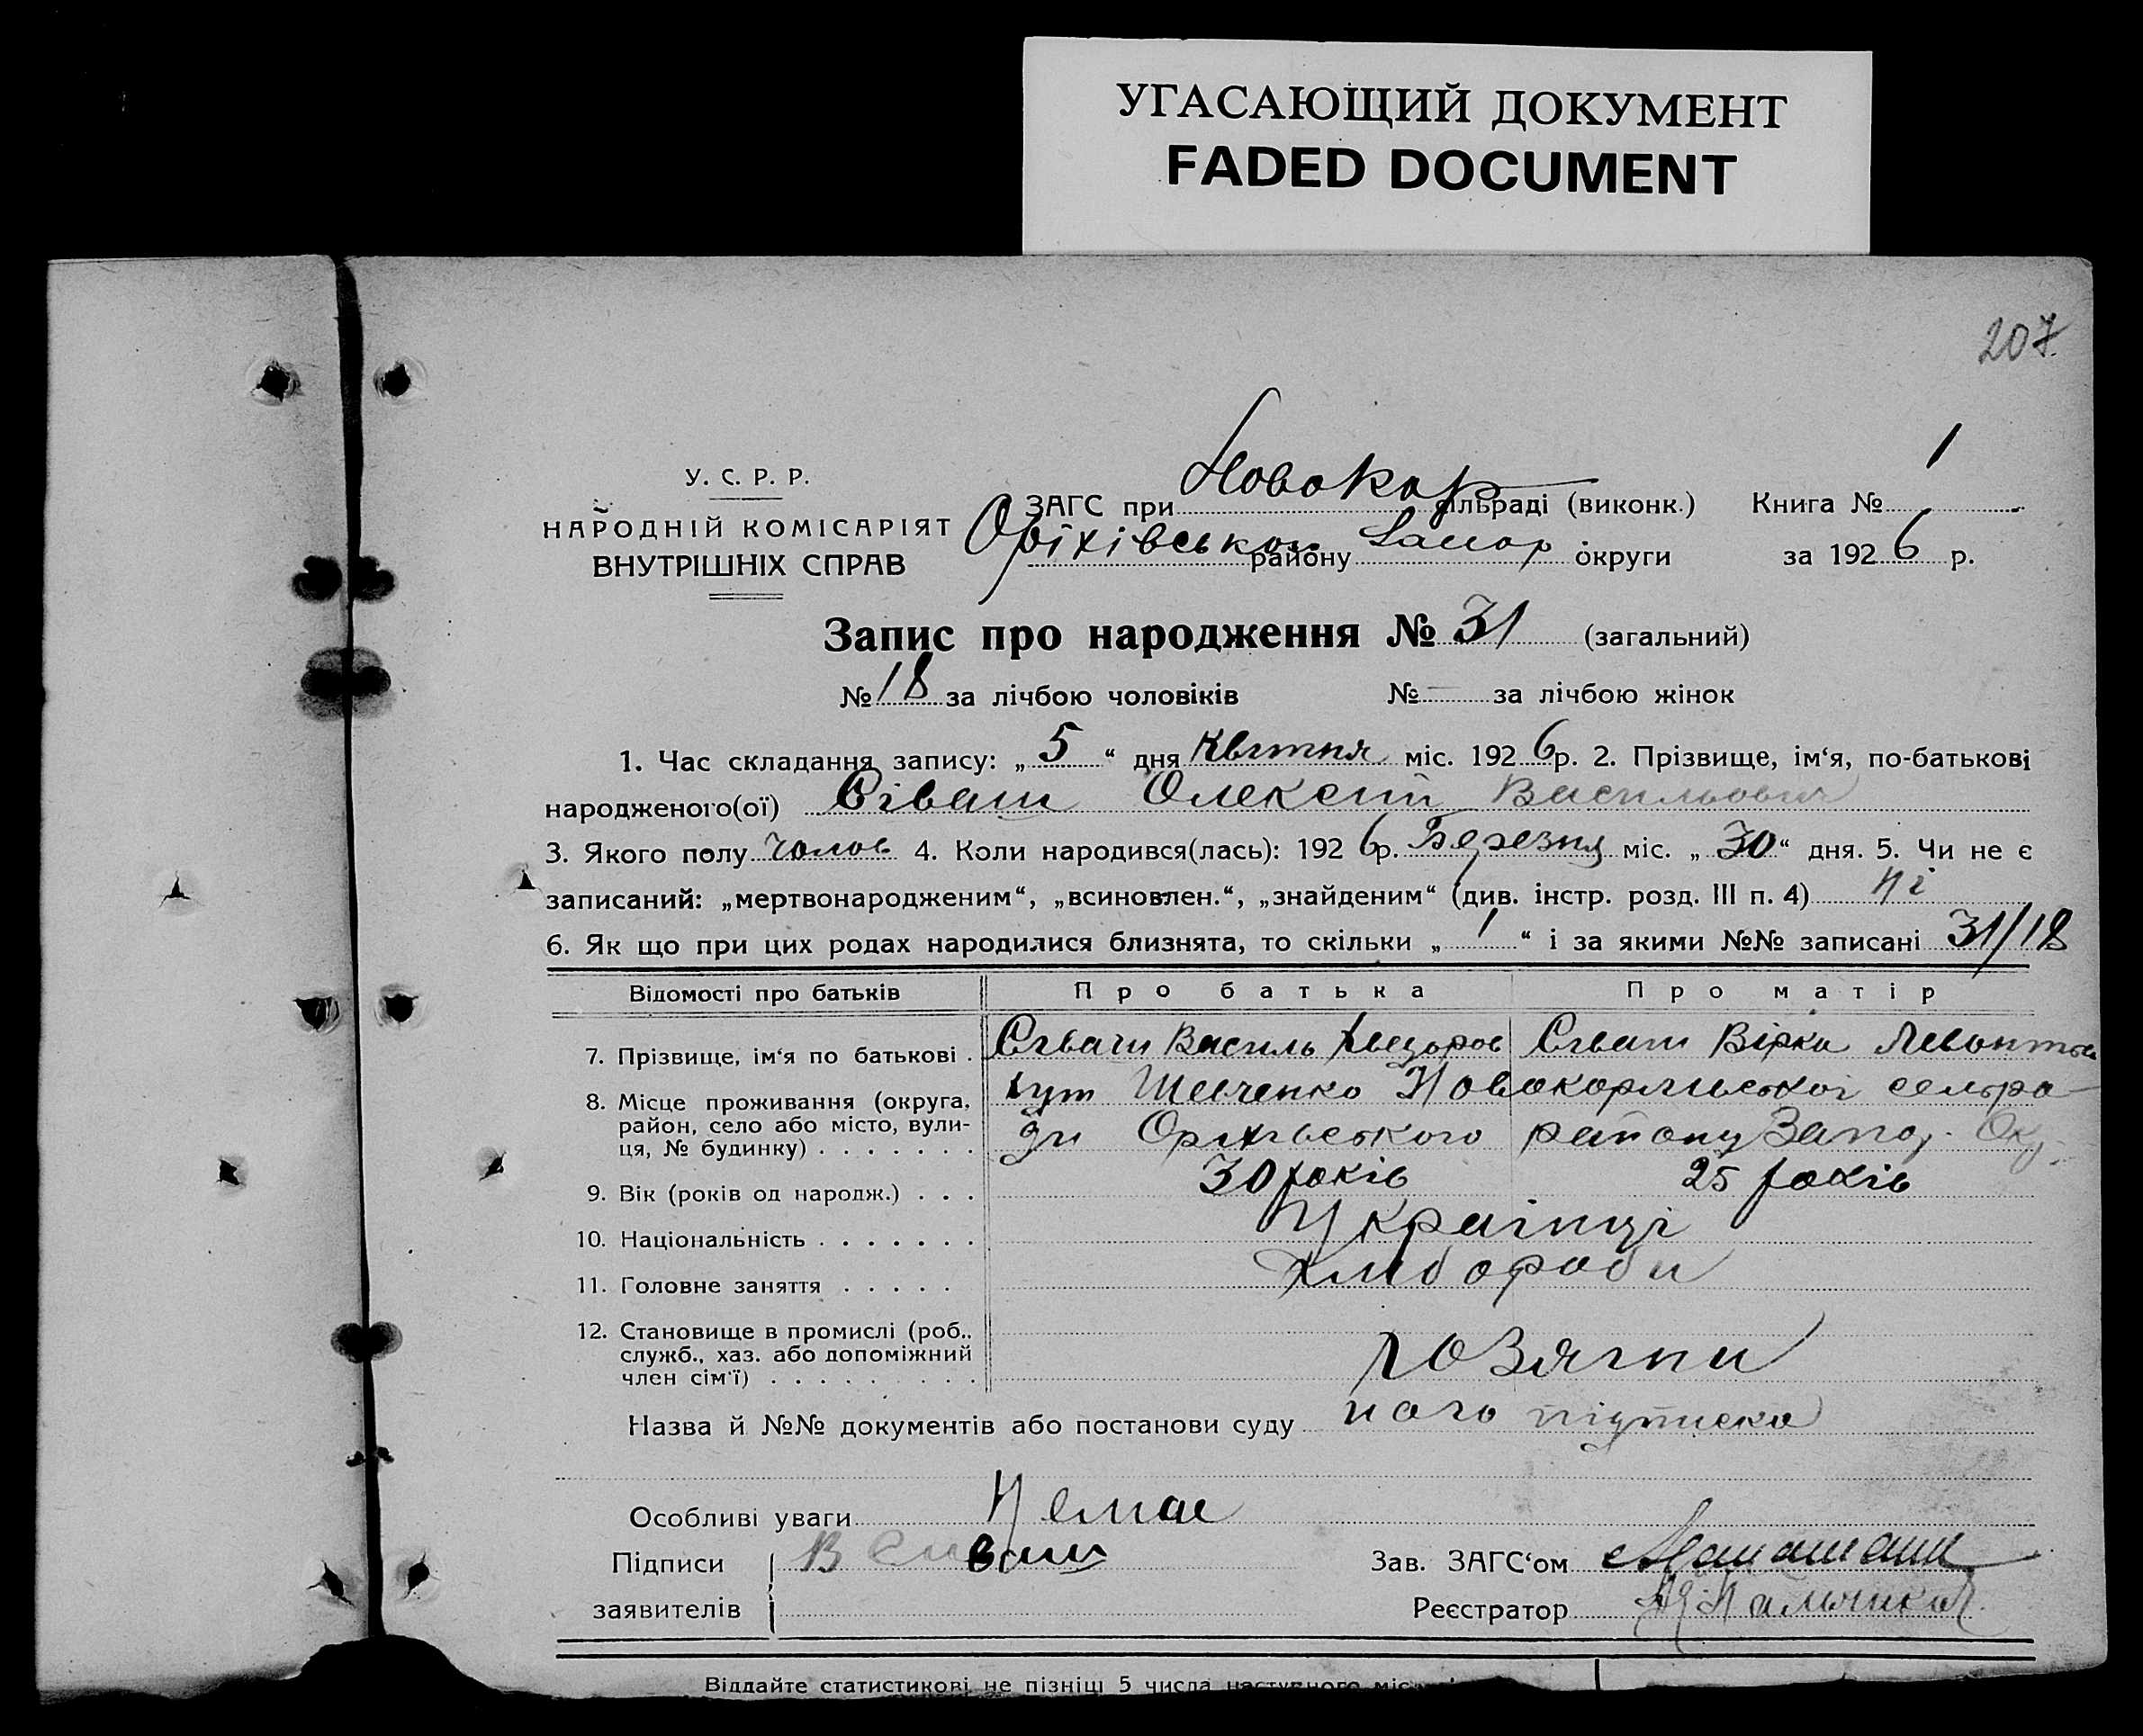 УГАСАЮЩИЙ ДОКУМЕНТ
FADED DOCUMENT
207
У. С. Р. Р.
НАРОДНІЙ КОМІСАРІЯТ
ВНУТРІШНІХ СПРАВ
ЗАГС при Новокар сільраді (виконк.) Книга № 1
Оріхівськом району Запор округи за 1926 р.
Запис про народження № 31 (загальний)
№ 18 за лічбою чоловіків № — за лічбою жінок
1. Час складання запису: „ 5 “ дня Квітня міс. 1926 р. 2. Прізвище, ім‘я, по-батькові
народженого(ої) Сіваш Олексій Васильович
3. Якого полу чолов 4. Коли народився(лась): 1926 р. Березня міс. „ 30 “ дня. 5. Чи не є
записаний: „мертвонародженим“, „всиновлен.“, „знайденим“ (див. інстр. розд. III п. 4) ні
6. Як що при цих родах народилися близнята, то скільки „ 1 “ і за якими №№ записані 31/18
Відомості про батьків Про батька Про матір
7. Прізвище, ім‘я по батькові . Сіваш Василь Хведоров Сіваш Вірка Левонтов
8. Місце проживання (округа, район, село або місто, вулиця, № будинку) . . . . . . .
хут Шевченко Новокарлівської сельра-
ди Оріхівського району Запор. Окр.
9. Вік (років од народж.) . . . 30 років 25 років
10. Національність . . . . . . . Українці
11. Головне заняття . . . . . Хлібороби
12. Становище в промислі (роб., служб., хаз. або допоміжний член сім‘ї) . . . . . . . . .
хозяїни
Назва й №№ документів або постанови суду його підписка
Особливі уваги Немає
Підписи В Сиваш Зав. ЗАГС‘ом
заявителів Реєстратор
Віддайте статистикові не пізніш 5 числа наступного міс